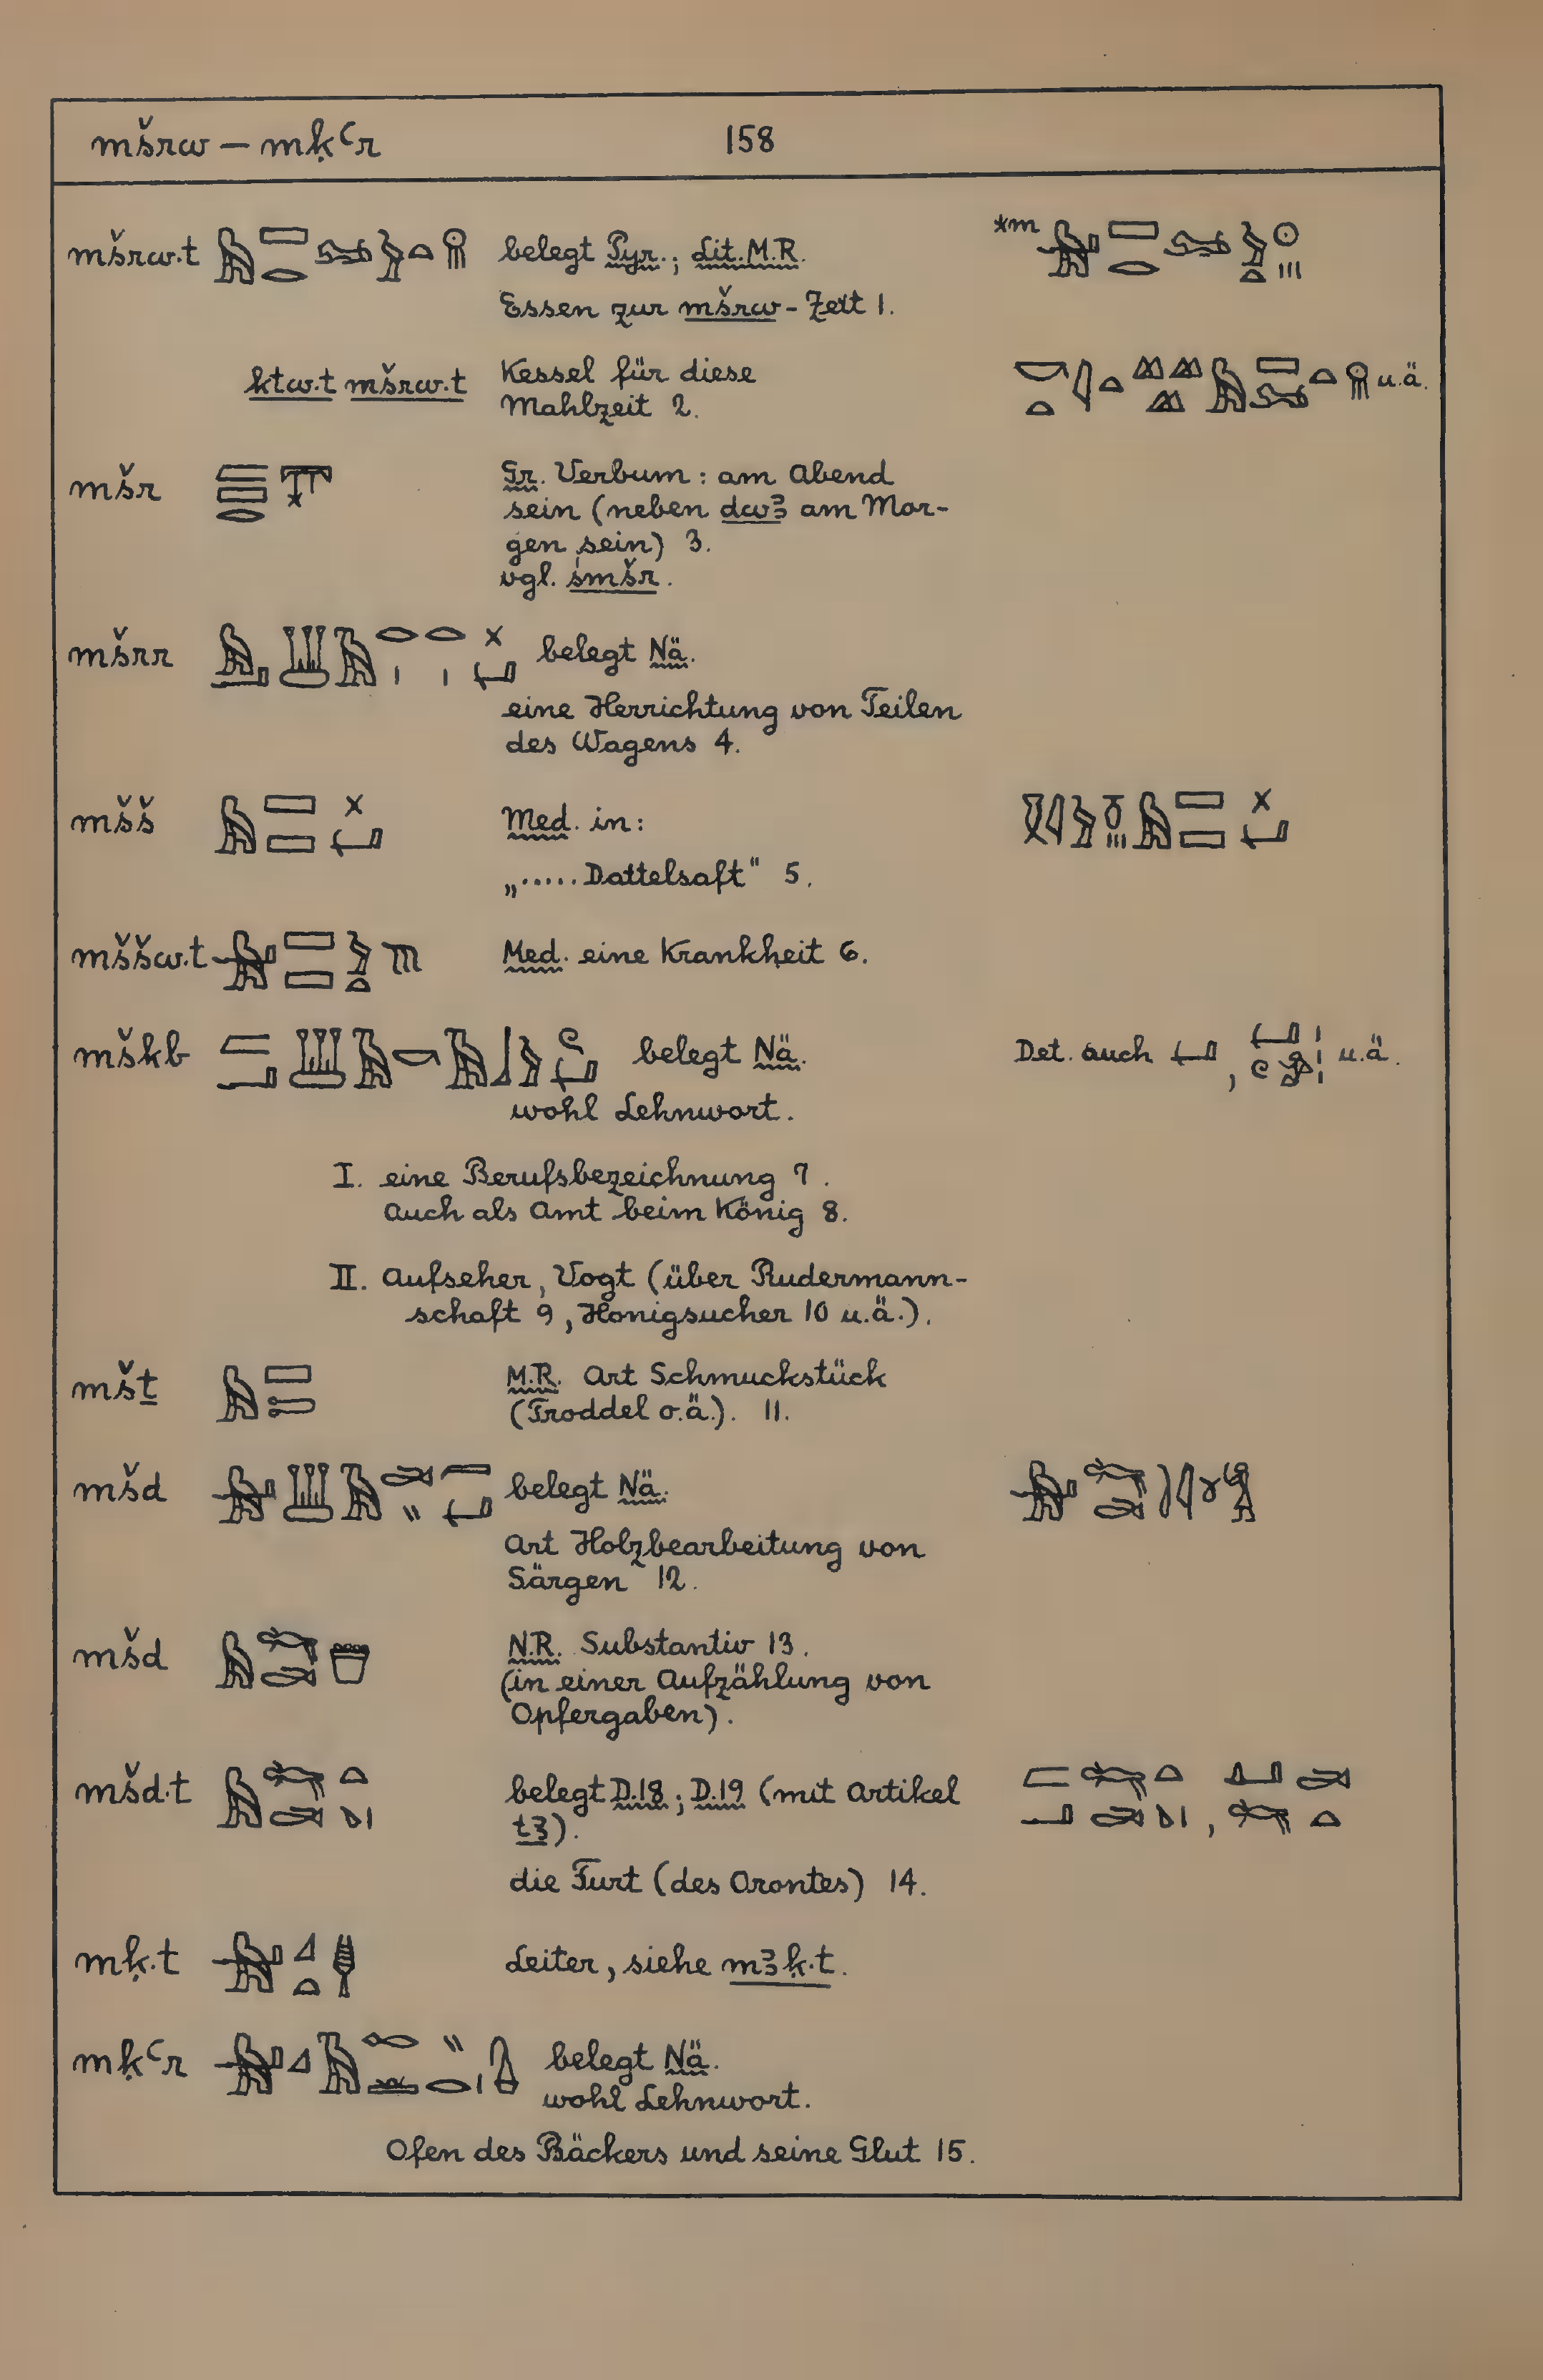 mšrw – mḳꜥr 158
mšrw.t belegt Pyr.; Lit. M.R. *m
Essen zur mšrw-Zeit 1.
ktw.t mšrw.t Kessel für diese u.ä.
Mahlzeit 2.
mšr Gr. Verbum: am Abend
sein (neben dwꜣ am Mor-
gen sein) 3.
vgl. śmšr.
mšrr belegt Nä.
eine Herrichtung von Teilen
des Wagens 4.
mšš Med. in:
„..... Dattelsaft" 5.
mššw.t Med. eine Krankheit 6.
mškb belegt Nä. Det. auch , u.ä.
wohl Lehnwort.
I. eine Berufsbezeichnung 7.
Auch als Amt beim König 8.
II. Aufseher, Vogt (über Rudermann-
schaft 9, Honigsucher 10 u.ä.).
mšṯ M.R. Art Schmuckstück
(Troddel o.ä.). 11.
mšd belegt Nä.
Art Holzbearbeitung von
Särgen 12.
mšd N.R. Substantiv 13.
(in einer Aufzählung von
Opfergaben).
mšd.t belegt D.18; D.19 (mit Artikel
tꜣ). ,
die Furt (des Orontes) 14.
mḳ.t Leiter, siehe mꜣḳ.t.
mḳꜥr belegt Nä.
wohl Lehnwort.
Ofen des Bäckers und seine Glut 15.